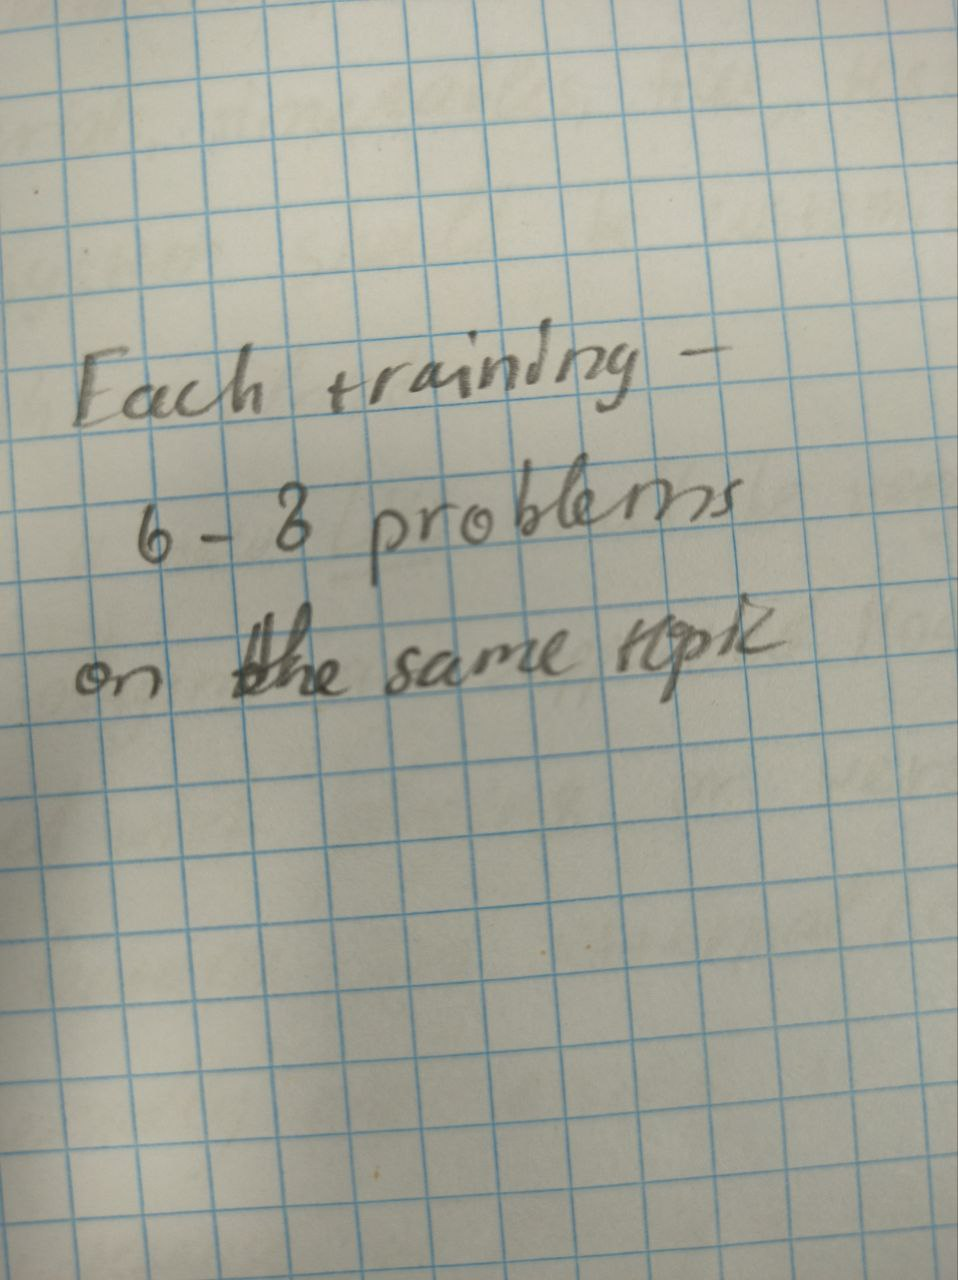 Each training -
6 - 8 problems
on the same topic